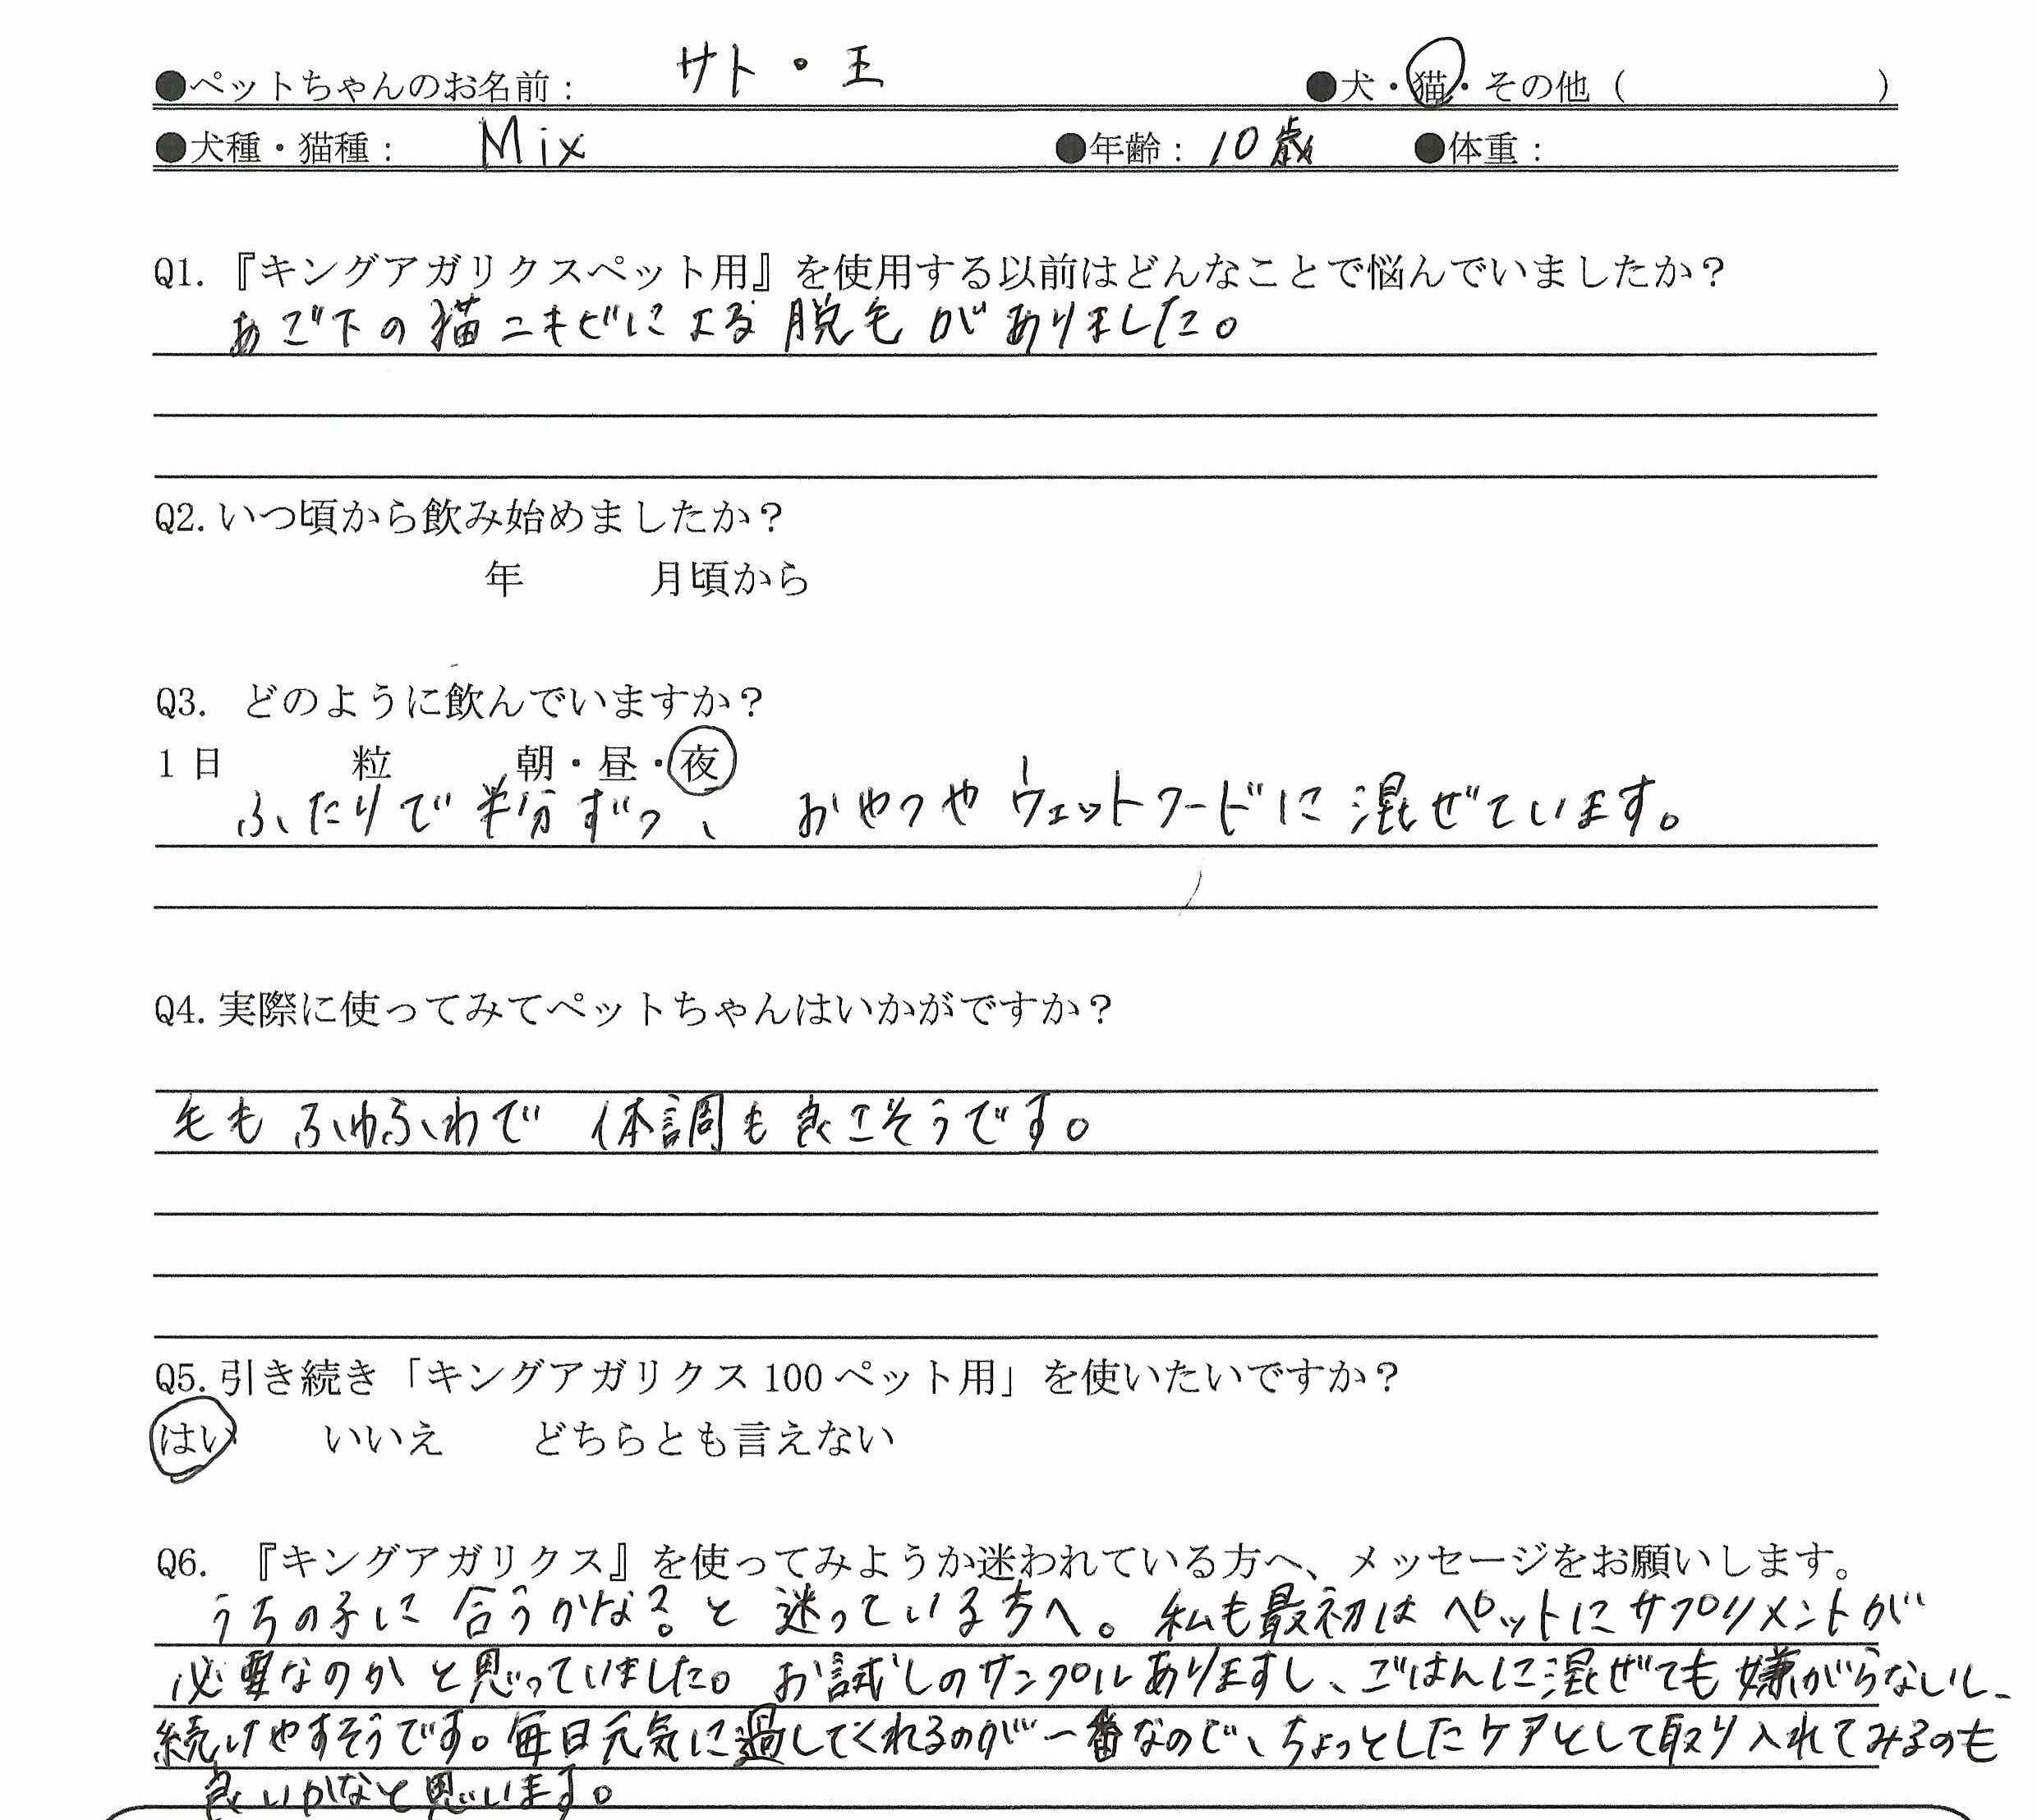 ●ペットちゃんのお名前： サト・王 ●犬・猫・その他（ ）
●犬種・猫種： Mix ●年齢：10歳 ●体重：
Q1.『キングアガリクスペット用』を使用する以前はどんなことで悩んでいましたか？
あご下の猫ニキビによる脱毛がありました。
Q2.いつ頃から飲み始めましたか？
年 月頃から
Q3. どのように飲んでいますか？
1日 粒 朝・昼・夜
ふたりで半分ずつ、おやつやウェットフードに混ぜています。
Q4.実際に使ってみてペットちゃんはいかがですか？
毛もふわふわで 体調も良さそうです。
Q5.引き続き「キングアガリクス100ペット用」を使いたいですか？
はい いいえ どちらとも言えない
Q6. 『キングアガリクス』を使ってみようか迷われている方へ、メッセージをお願いします。
うちの子に合うかな？と迷っている方へ。私も最初はペットにサプリメントが
必要なのかと思っていました。お試しのサンプルありますし、ごはんに混ぜても嫌がらないし、
続けやすそうです。毎日元気に過してくれるのが一番なので、ちょっとしたケアとして取り入れてみるのも
良いかなと思います。